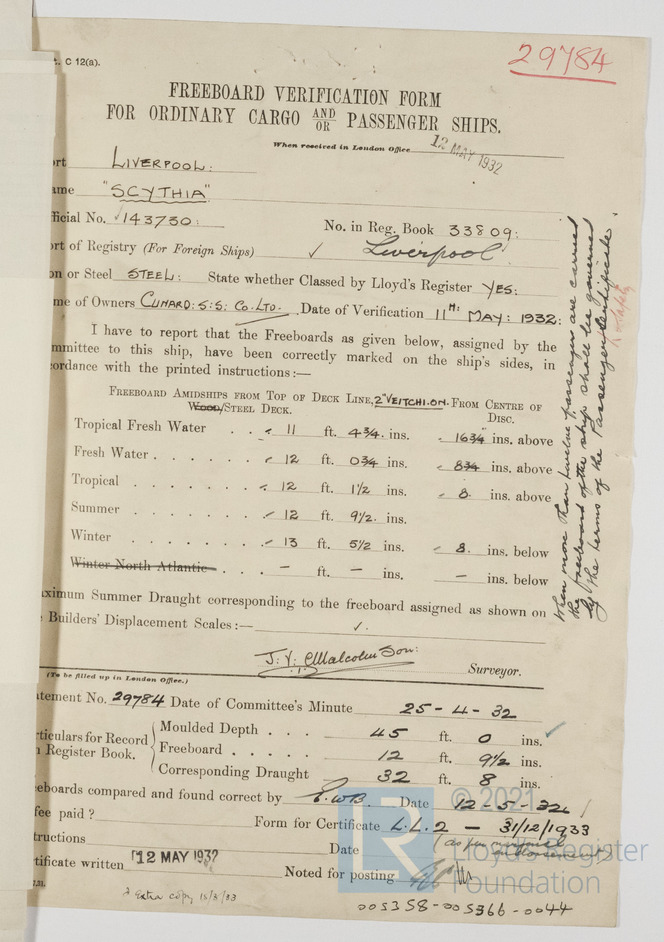 t. C 12(a).
29784
FREEBOARD VERIFICATION FORM
FOR ORDINARY CARGO AND/OR PASSENGER SHIPS.
When received in London Office 12 MAY 1932
ort LIVERPOOL:
ame "SCYTHIA"
ficial No. 143730: No. in Reg. Book 33809:
ort of Registry (For Foreign Ships) ✓ Liverpool
on or Steel STEEL: State whether Classed by Lloyd's Register YES:
me of Owners CUNARD: S:S: Co. LTD. Date of Verification 11TH: MAY: 1932:
I have to report that the Freeboards as given below, assigned by the
mmittee to this ship, have been correctly marked on the ship's sides, in
ordance with the printed instructions:—
FREEBOARD AMIDSHIPS FROM TOP OF DECK LINE, 2" VEITCHI.ON. FROM CENTRE OF
Wood/STEEL DECK. DISC.
Tropical Fresh Water . . 11 ft. 4¾. ins. 16¾ ins. above
Fresh Water . . . . . . 12 ft. 0¾ ins. 8¾ ins. above
Tropical . . . . . . . 12 ft. 1½ ins. 8. ins. above
Summer . . . . . . . 12 ft. 9½. ins.
Winter . . . . . . . 13 ft. 5½ ins. 8. ins. below
Winter North Atlantic . . . – ft. – ins. – ins. below
When more than twelve passengers are carried
the freeboard of the ship shall be governed
by the terms of the Passenger Certificate.
aximum Summer Draught corresponding to the freeboard assigned as shown on
Builders' Displacement Scales:— ✓.
J. Y. Malcolmson: Surveyor.
(To be filled up in London Office.)
atement No. 29784 Date of Committee's Minute 25-4-32
rticulars for Record
n Register Book.
Moulded Depth . . . 45 ft. 0 ins. ✓
Freeboard . . . . . 12 ft. 9½ ins.
Corresponding Draught 32 ft. 8 ins.
eboards compared and found correct by E.WB. Date 12-5-32
fee paid? Form for Certificate L.L.2 — 31/12/1933
tructions Date (as per
rtificate written 12 MAY 1932 Noted for posting
Extra copy 15/3/33
005358-005366-0044
© 2021
Lloyd's Register
Foundation